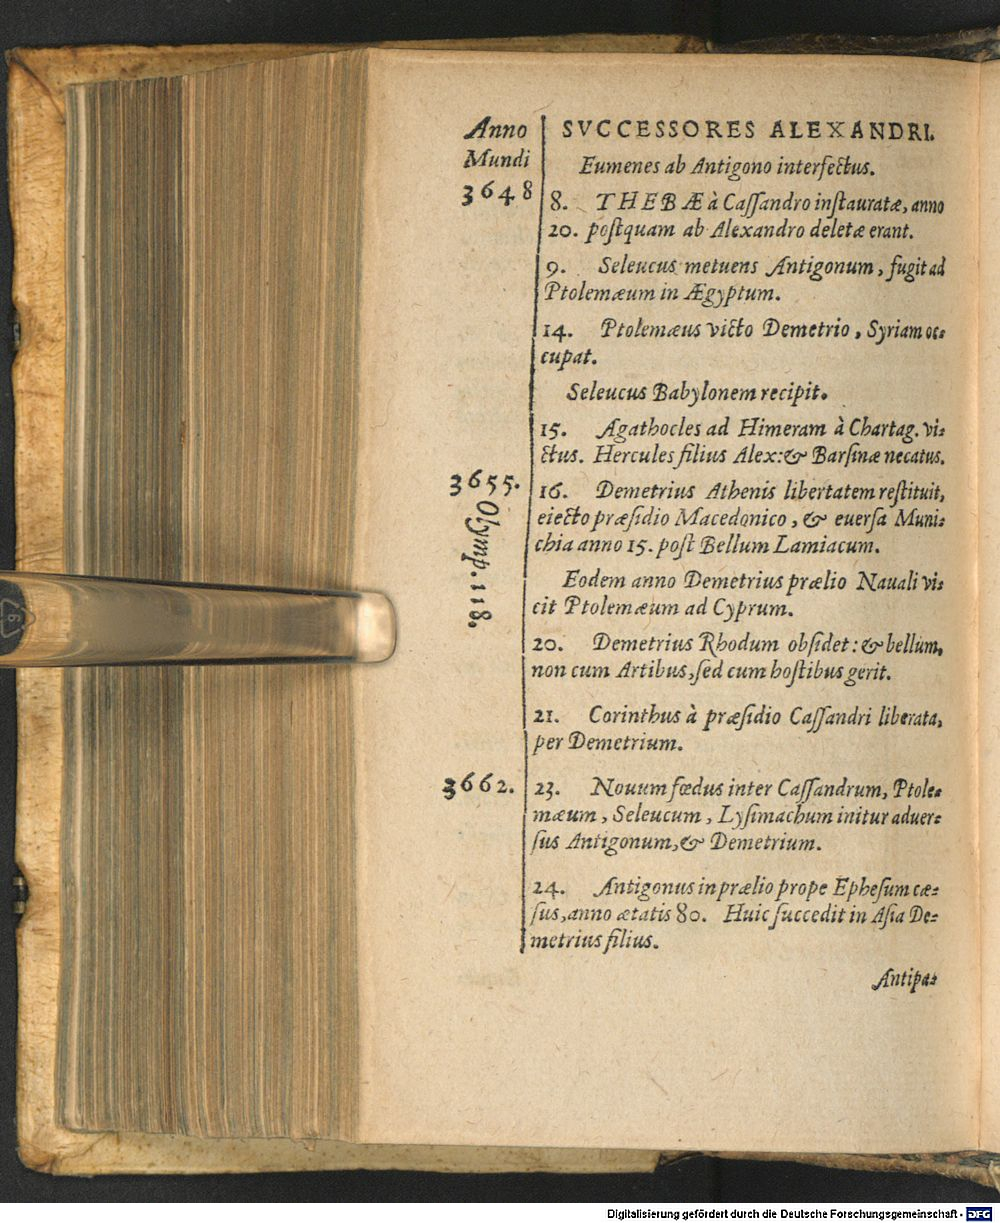 Anno
Mundi
3648
SVCCESSORES ALEXANDRI.
Eumenes ab Antigono interfectus.
8. THEBÆ à Caſſandro inſtauratæ, anno
20. poſtquam ab Alexandro deletæ erant.
9. Seleucus metuens Antigonum, fugit ad
Ptolemæum in Ægyptum.
14. Ptolemæus victo Demetrio, Syriam oc⸗
cupat.
Seleucus Babylonem recipit.
15. Agathocles ad Himeram à Chartag. vi⸗
ctus. Hercules filius Alex: & Barſinæ necatus.
3655.
Olymp. 118.
16. Demetrius Athenis libertatem reſtituit,
eiecto præſidio Macedonico, & euerſa Muni⸗
chia anno 15. poſt Bellum Lamiacum.
Eodem anno Demetrius prælio Nauali vi⸗
cit Ptolemæum ad Cyprum.
20. Demetrius Rhodum obſidet: & bellum,
non cum Artibus, ſed cum hoſtibus gerit.
21. Corinthus à præſidio Caſſandri liberata,
per Demetrium.
3662.
23. Nouum fœdus inter Caſſandrum, Ptole⸗
mæum, Seleucum, Lyſimachum initur aduer⸗
ſus Antigonum, & Demetrium.
24. Antigonus in prælio prope Epheſum cæ⸗
ſus, anno ætatis 80. Huic ſuccedit in Aſia De⸗
metrius filius.
Antipa⸗
Digitalisierung gefördert durch die Deutsche Forschungsgemeinschaft - DFG